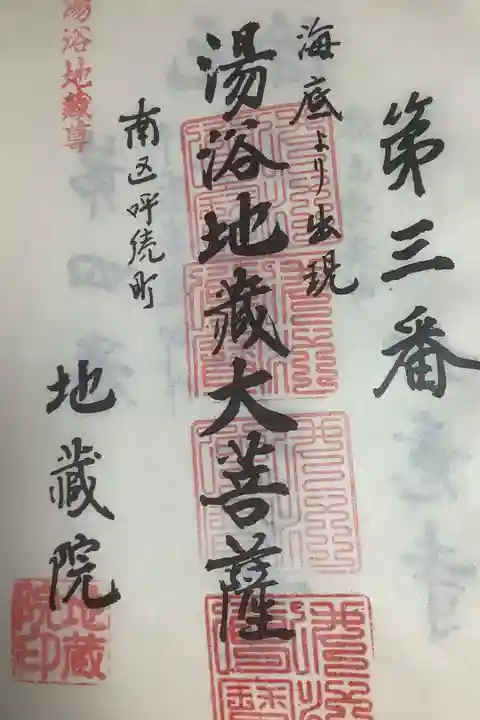 第三番
海底より出現
湯浴地蔵大菩薩
南区呼続町
地蔵院
湯浴地蔵尊
地蔵院印